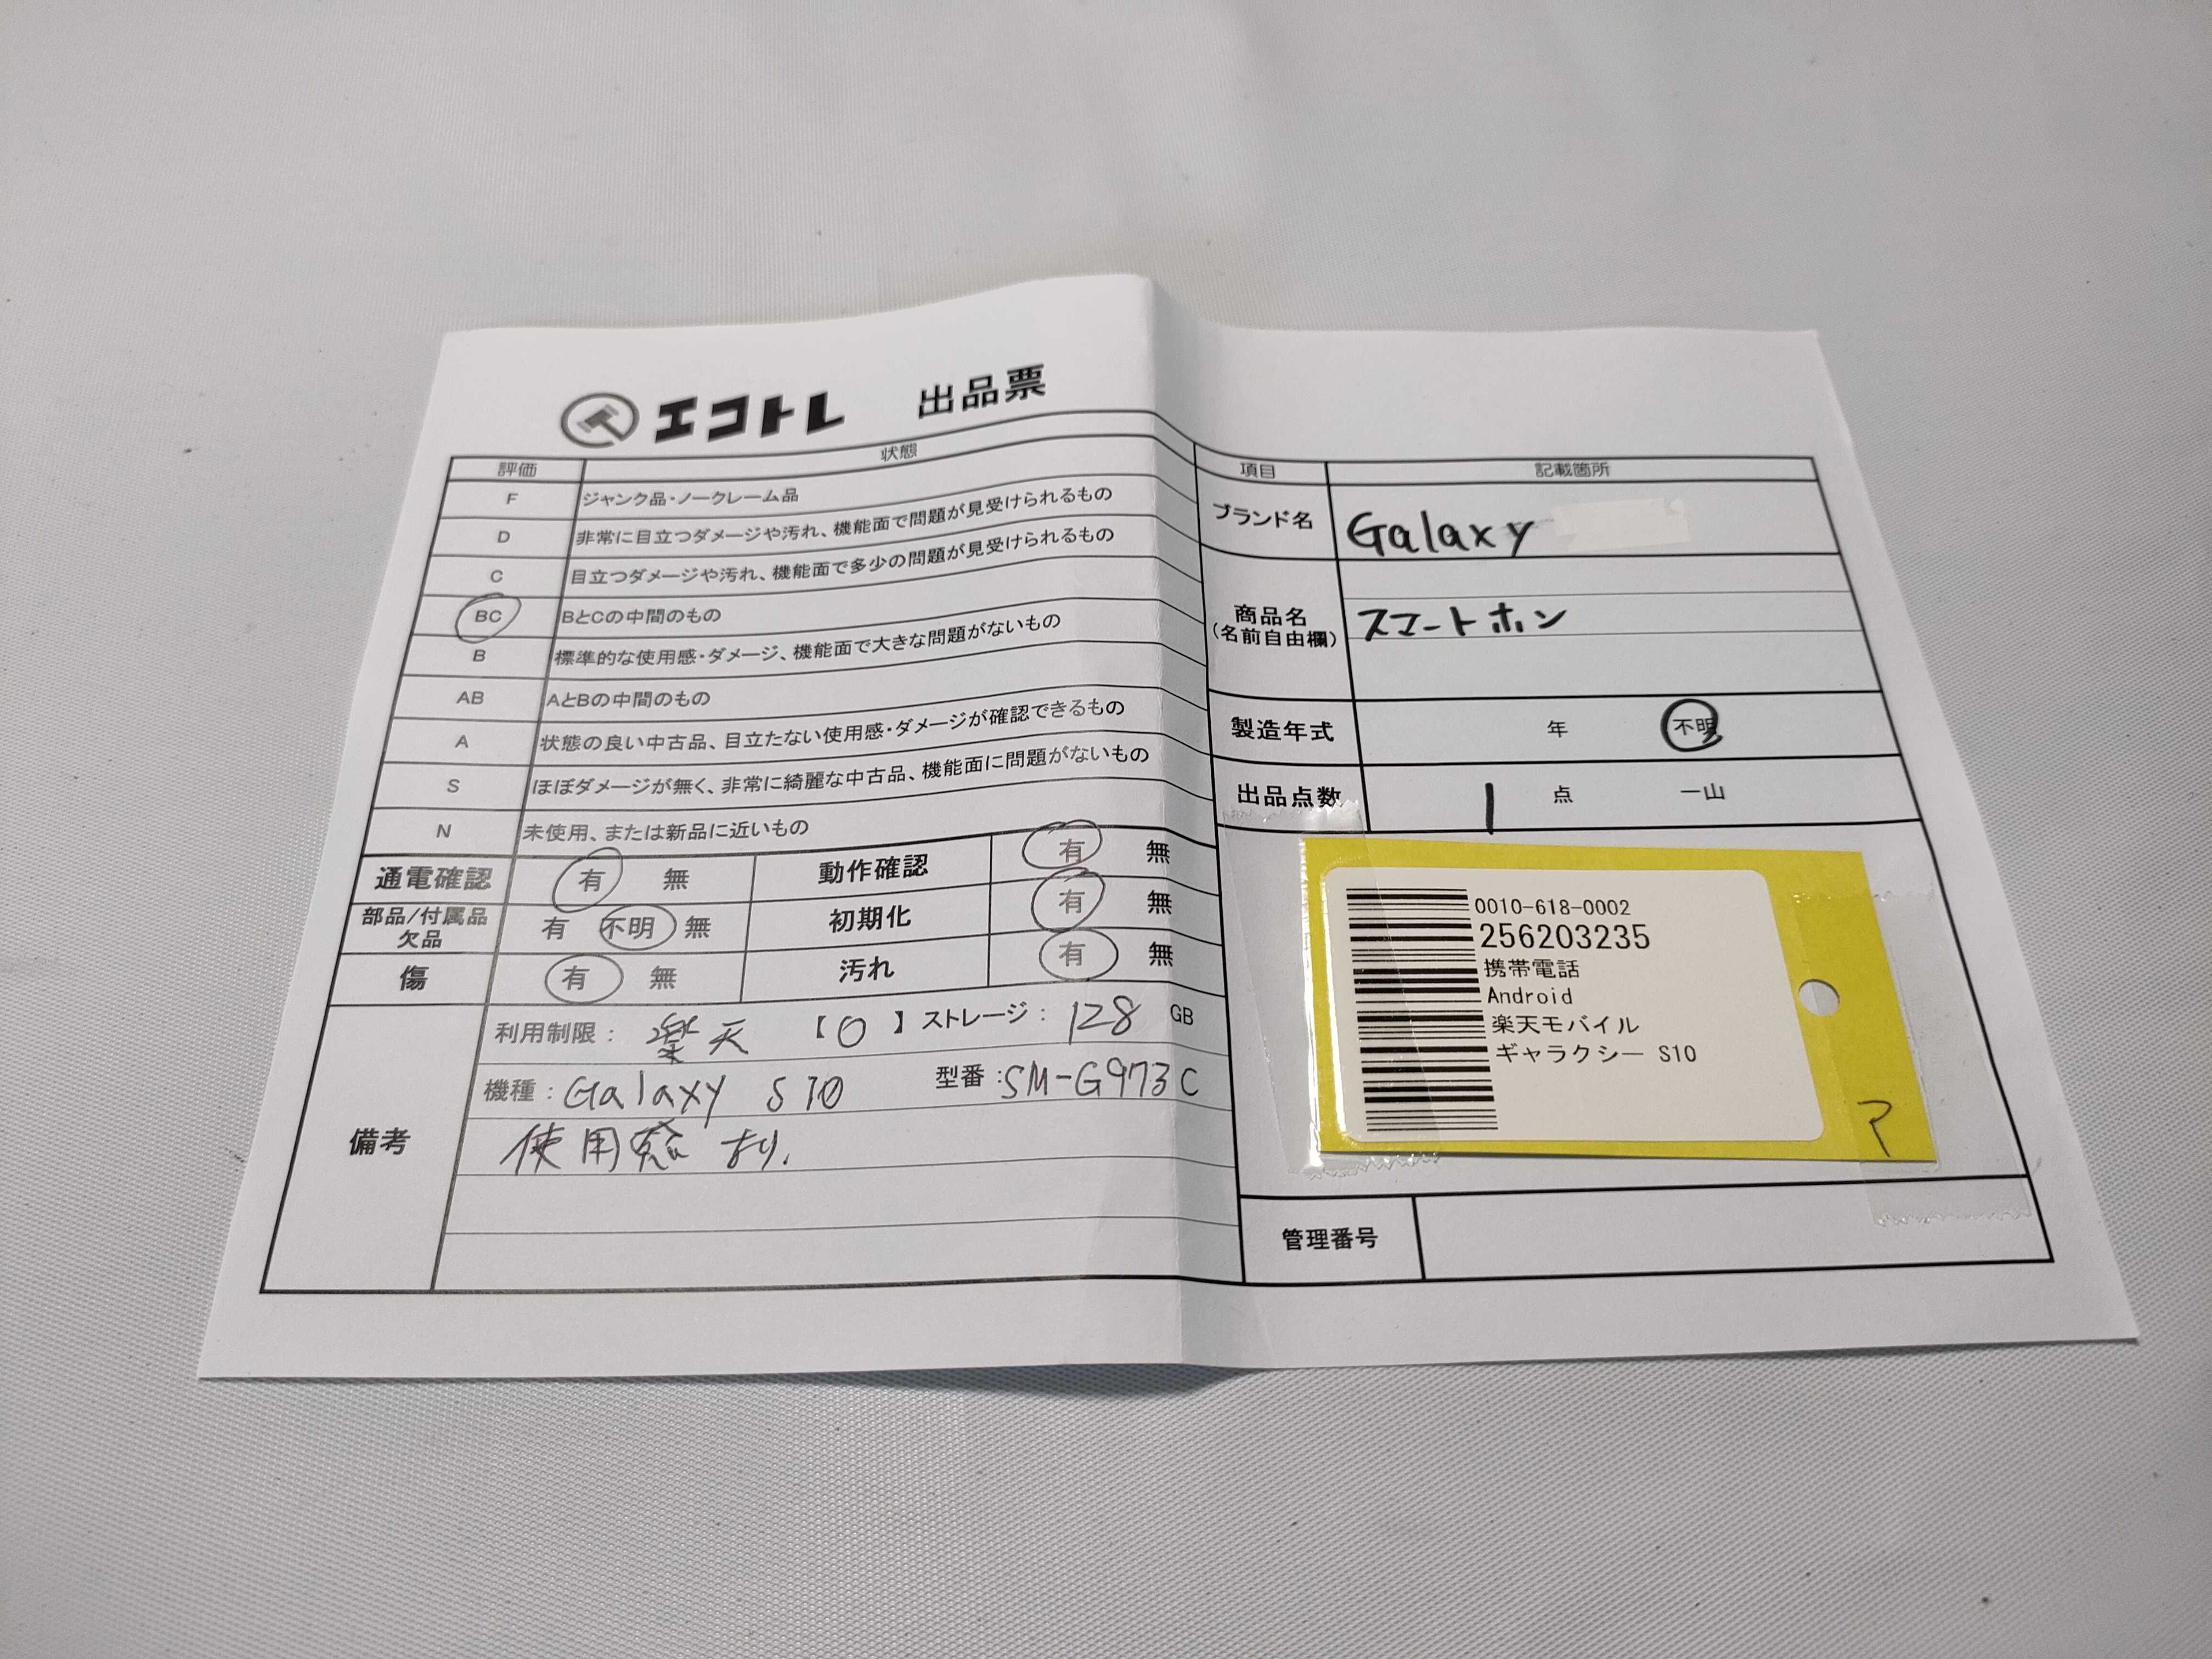 エコトレ 出品票
評価 状態
F ジャンク品・ノークレーム品
D 非常に目立つダメージや汚れ、機能面で問題が見受けられるもの
C 目立つダメージや汚れ、機能面で多少の問題が見受けられるもの
BC BとCの中間のもの
B 標準的な使用感・ダメージ、機能面で大きな問題がないもの
AB AとBの中間のもの
A 状態の良い中古品、目立たない使用感・ダメージが確認できるもの
S ほぼダメージが無く、非常に綺麗な中古品、機能面に問題がないもの
N 未使用、または新品に近いもの
通電確認 有 無 動作確認 有 無
部品/付属品 欠品 有 不明 無 初期化 有 無
傷 有 無 汚れ 有 無
備考
利用制限: 楽天 【〇】 ストレージ: 128 GB
機種: Galaxy S10 型番:SM-G973C
使用感 あり.
項目 記載箇所
ブランド名 Galaxy
商品名
(名前自由欄) スマートホン
製造年式 年 不明
出品点数 1 点 一山
0010-618-0002
256203235
携帯電話
Android
楽天モバイル
ギャラクシー S10
マ
管理番号